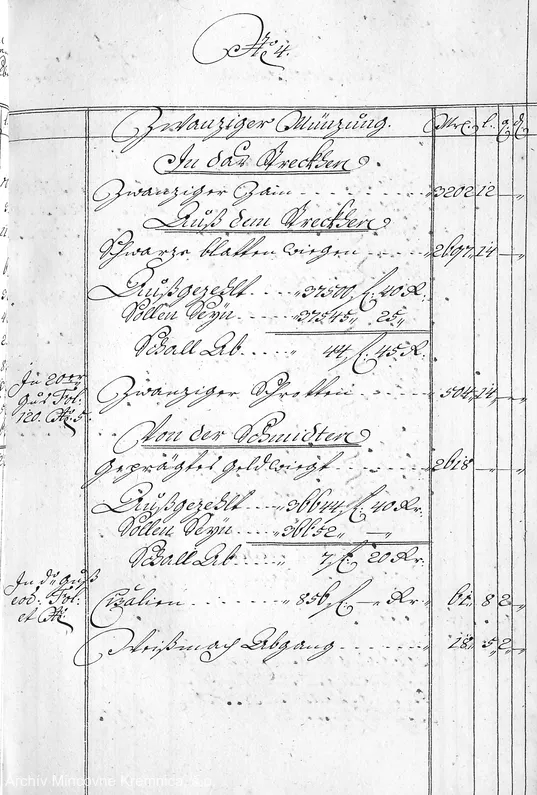 No 4.
Zwanziger Münzung. Mrc. l. q. d.
In das Streckhen
Zwanziger Zain 3202 12 —
Auß dem Streckhen
Schwarze blatten wiegen 2697 14 —
Außgezehlt 37500 f. 40 Kr.
Sollen Seyn 37545 25
Schall Ab 44 f. 45 Kr.
In 20er
Guß Fol:
120. No. 5.
Zwanziger Schrotten 504 14 —
Von der Schmidten
Geprägtes Geld wiegt 2618 — —
Außgezehlt 36644 f. 40 Kr.
Sollen Seyn 36652 —
Schall Ab 7 f. 20 Kr.
In d. Guß
eod: Fol:
et No.
Cisalien 856 f. — Kr. 61 8 2
Weißmach Abgang 18 5 2
Archiv Mincovne Kremnica, š.p.